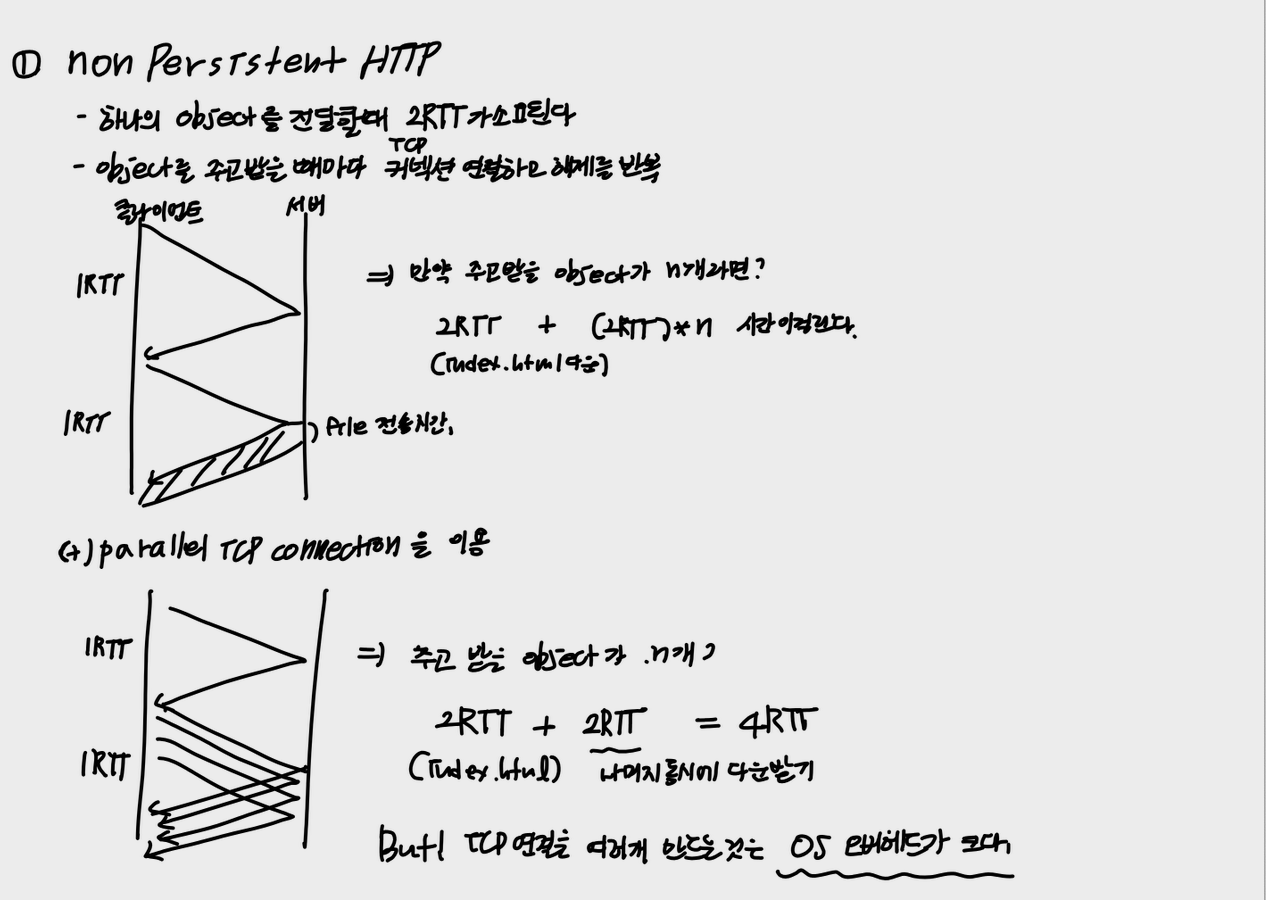 ① non Persistent HTTP
- 하나의 object를 전달할때 2RTT가 소요된다
- object를 주고받을 때마다 TCP 커넥션 연결하고 해제를 반복
클라이언트 서버
1RTT
⇒ 만약 주고받을 object가 n개라면?
2RTT + (2RTT)*n 시간이걸린다.
(Index.html다운)
1RTT
File 전송시간.
(+) parallel TCP connection을 이용
1RTT
⇒ 주고 받을 object가 .n개?
2RTT + 2RTT = 4RTT
(Index.html) 나머지동시에 다운받기
1RTT
But! TCP 연결을 여러개 만드는것은 OS 오버헤드가 크다